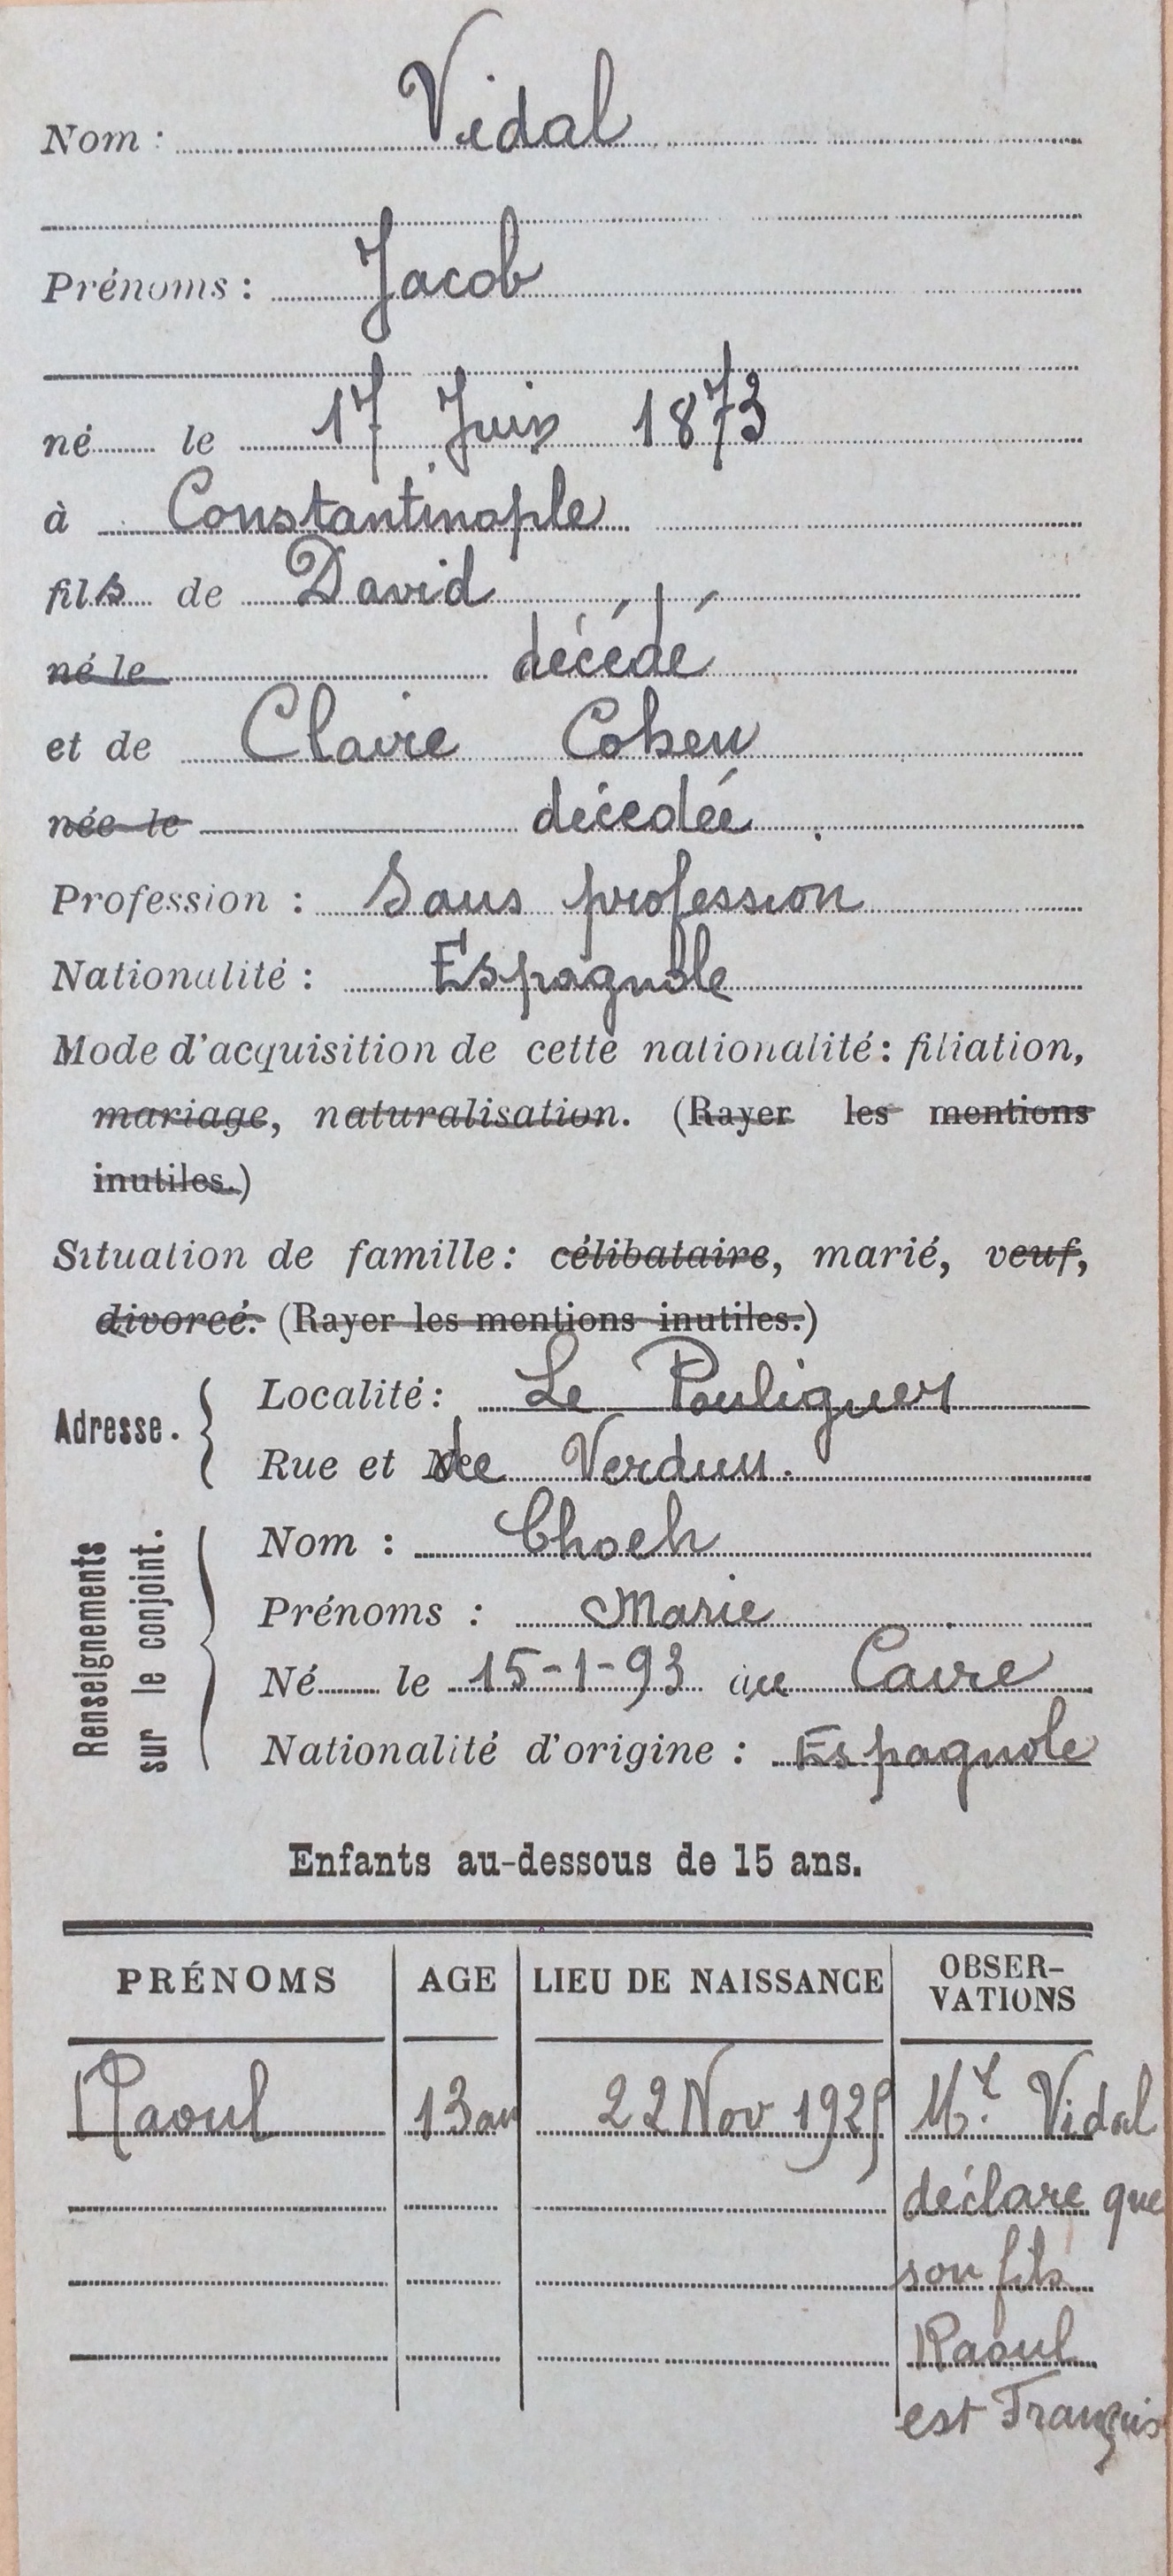 Nom : Vidal
Prénoms : Jacob
né le 17 Juin 1873
à Constantinople
fils de David
né le décédé
et de Claire Cohen
née le décédée
Profession : Sans profession
Nationalité : Espagnole
Mode d'acquisition de cette nationalité : filiation,
mariage, naturalisation. (Rayer les mentions
inutiles.)
Situation de famille : célibataire, marié, veuf,
divorcé. (Rayer les mentions inutiles.)
Adresse. Localité : Le Pouliguen
Rue et de Verdun.
Renseignements sur le conjoint.
Nom : Choeh
Prénoms : Marie
Né le 15-1-93 au Caire
Nationalité d'origine : Espagnole
Enfants au-dessous de 15 ans.
PRÉNOMS AGE LIEU DE NAISSANCE OBSER-
VATIONS
Raoul 13 an 22 Nov 1925 Mr. Vidal
déclare que
son fils
Raoul
est Français